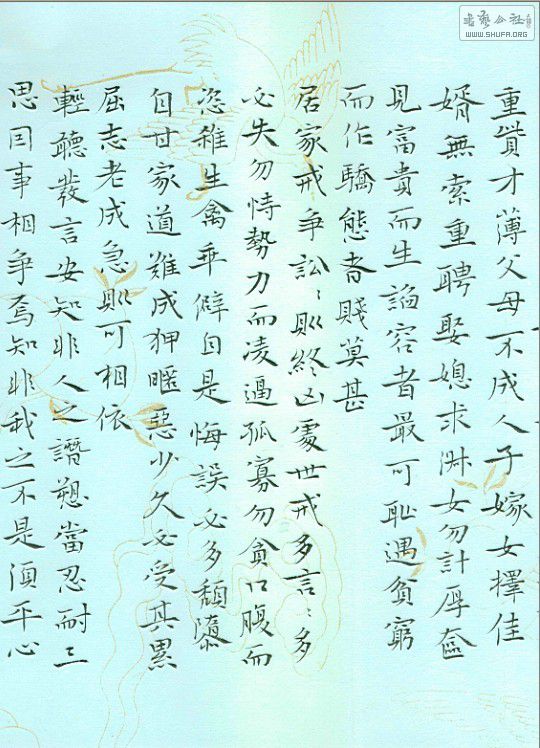 書藝公社
WWW.SHUFA.ORG
重貲才薄父母不成人子嫁女擇佳
婿無索重聘娶媳求淑女勿計厚奩
見富貴而生諂容者最可恥遇貧窮
而作驕態者賤莫甚
居家戒爭訟〻則終凶處世戒多言〻多
必失勿恃勢力而凌逼孤寡勿貪口腹而
恣殺生禽乖僻自是悔誤必多頹隳
自甘家道難成狎暱惡少久必受其累
屈志老成急則可相依
輕聽發言安知非人之譖愬當忍耐三
思因事相爭焉知非我之不是須平心